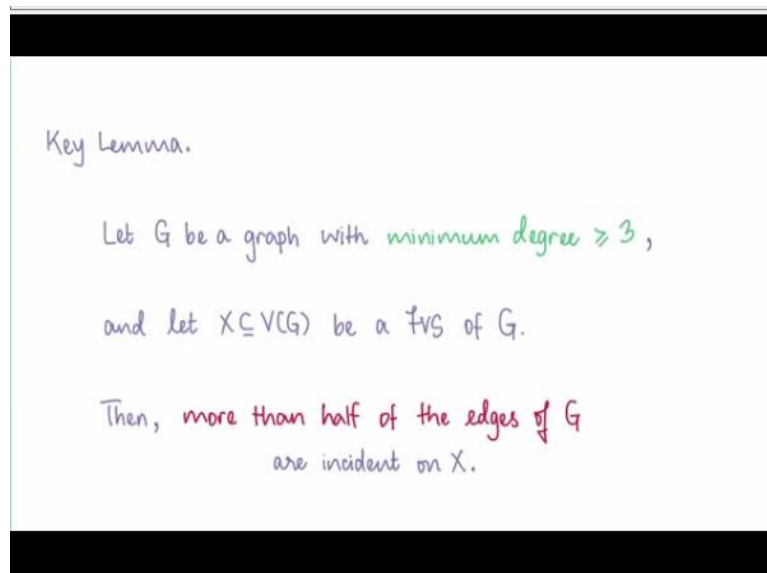 Key Lemma.
Let G be a graph with minimum degree ≥ 3,
and let X ⊆ V(G) be a fvs of G.
Then, more than half of the edges of G
are incident on X.